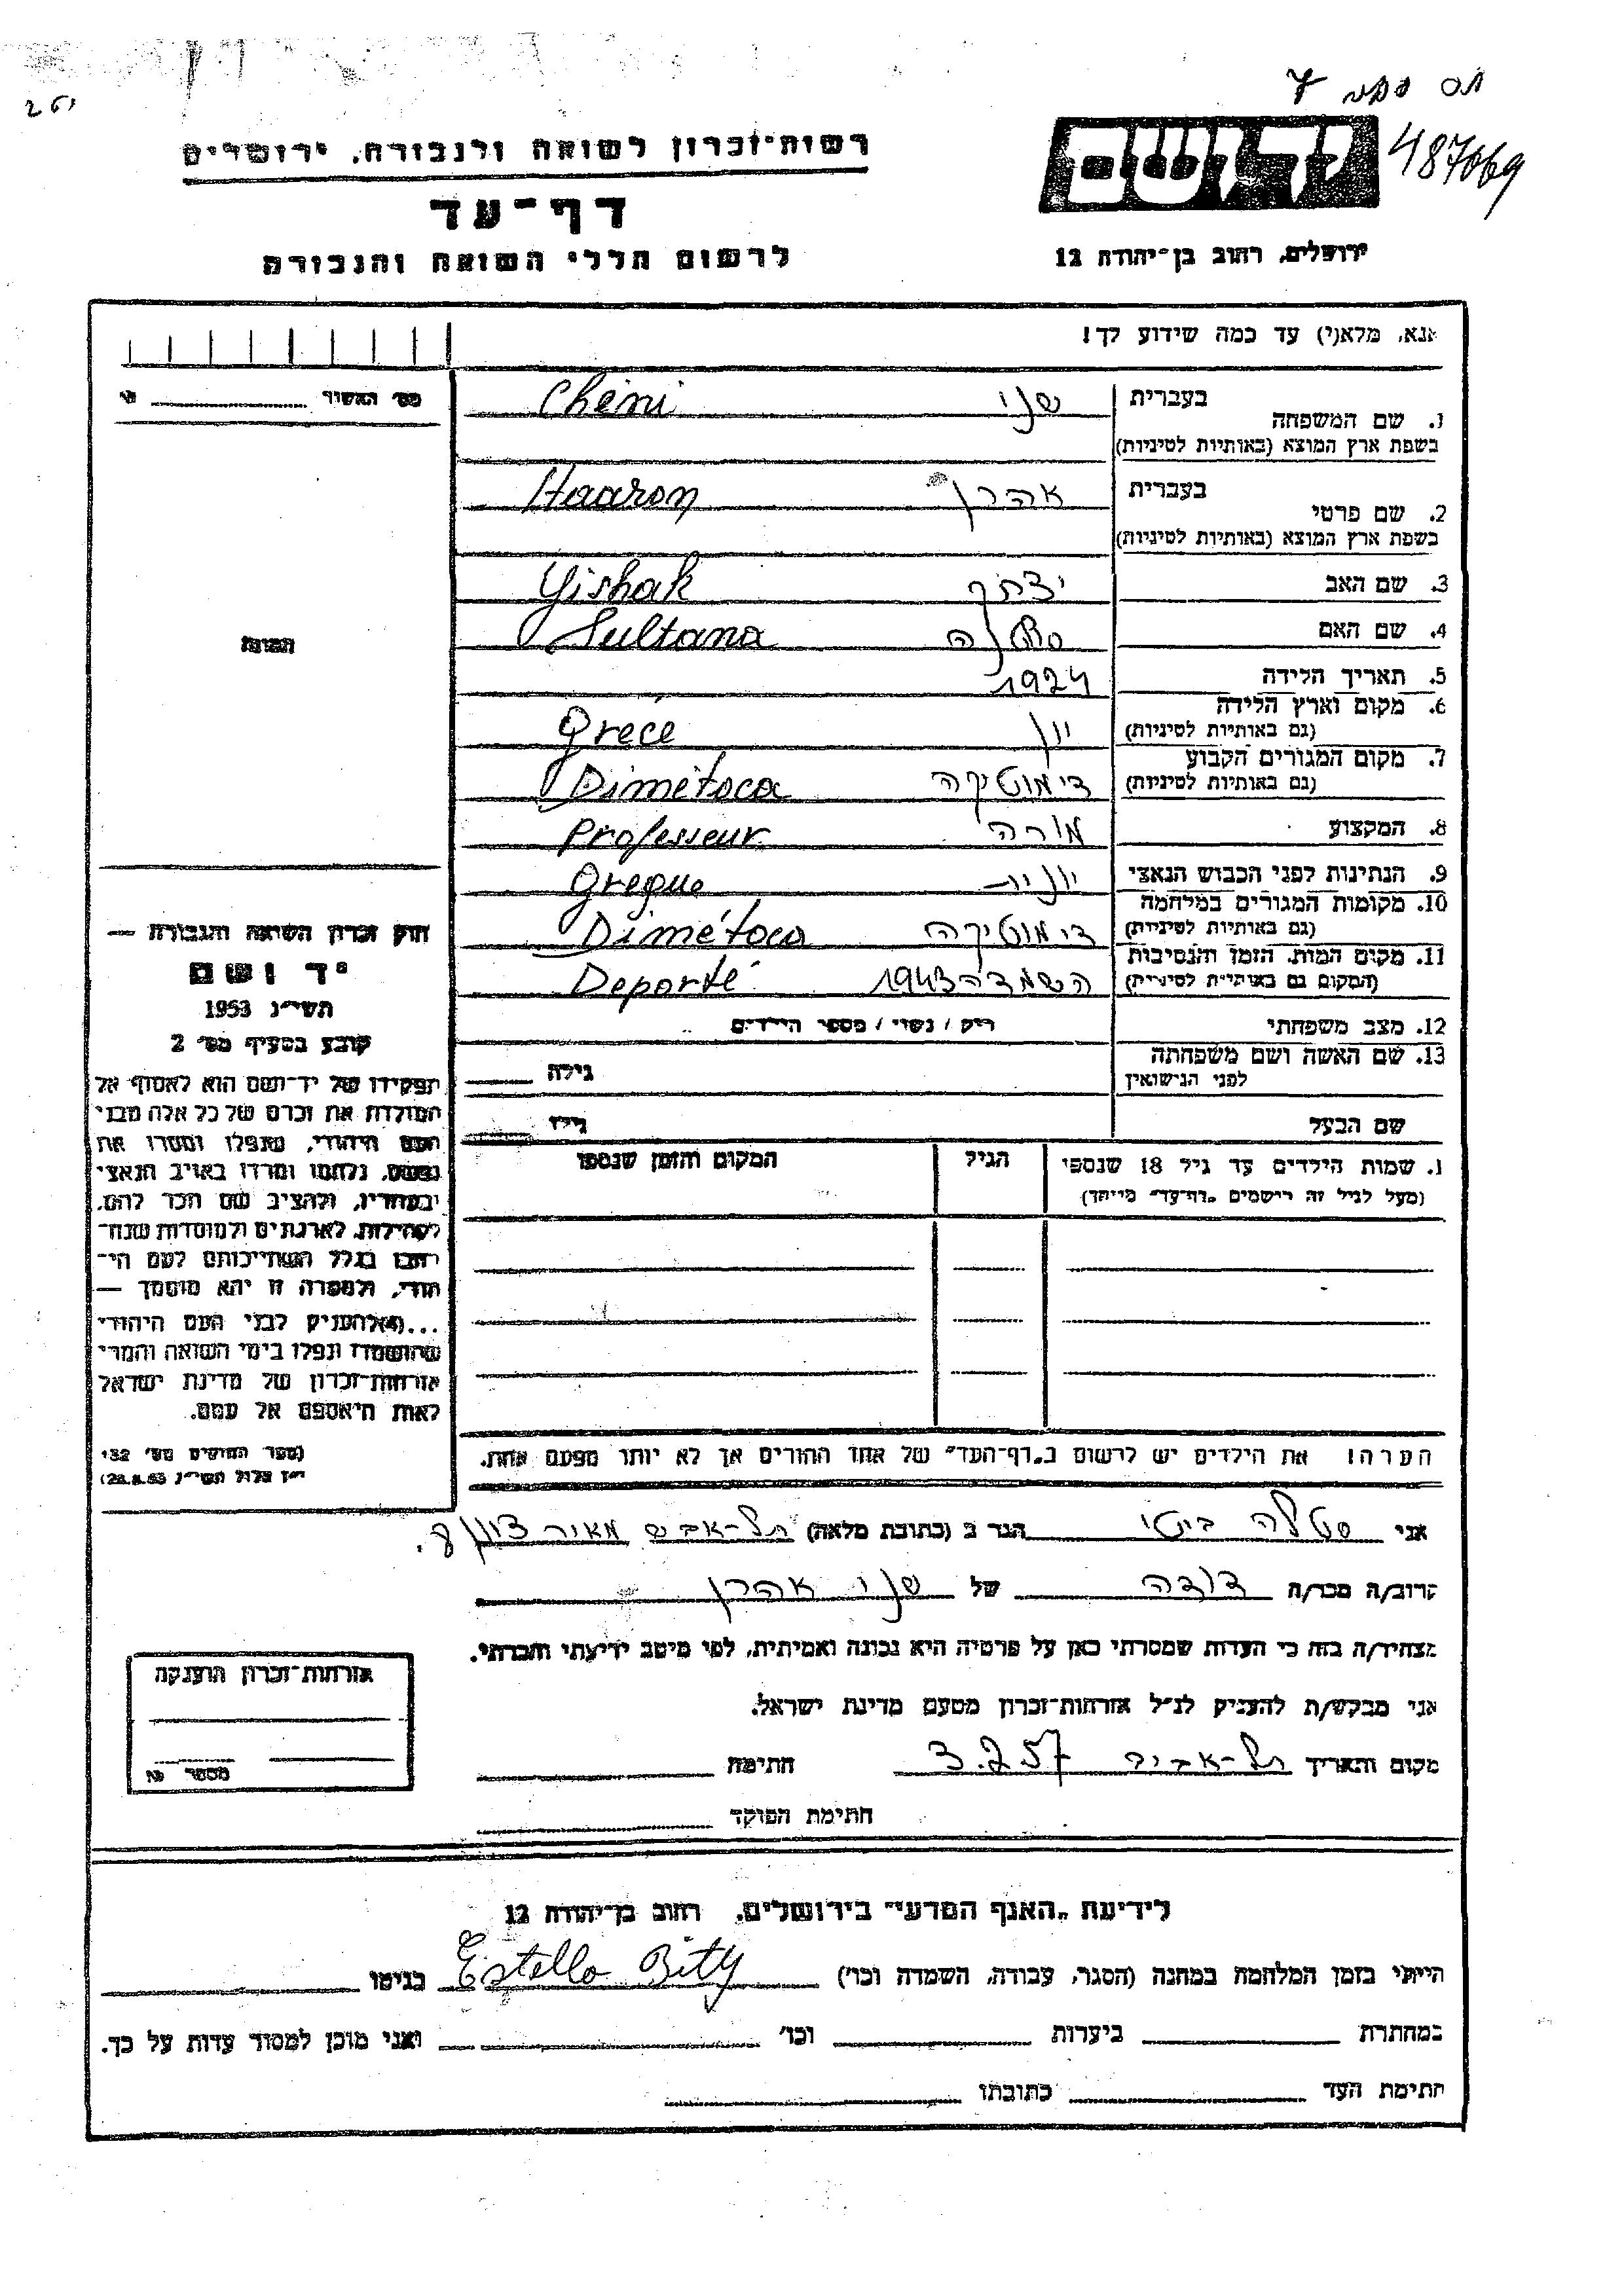 487069
רשות־זכרון לשואה ולגבורה, ירושלים
דף־עד
לרשום חללי השואה והגבורה
יד ושם
ירושלים, רחוב בן־יהודה 12
אנא, מלא(י) עד כמה שידוע לך!
1. שם המשפחה בעברית שני Chéni
בשפת ארץ המוצא (באותיות לטיניות)
2. שם פרטי בעברית אהרן Haaron
בשפת ארץ המוצא (באותיות לטיניות)
3. שם האב יצחק Yishak
4. שם האם סולטנה Sultana
5. תאריך הלידה 1924
6. מקום וארץ הלידה יון Grece
(גם באותיות לטיניות)
7. מקום המגורים הקבוע דימוטיקה Dimétoca
(גם באותיות לטיניות)
8. המקצוע מורה Professeur
9. הנתינות לפני הכבוש הנאצי יונית Greque
10. מקומות המגורים במלחמה דימוטיקה Dimétoca
(גם באותיות לטיניות)
11. מקום המות, הזמן והנסיבות השמדה 1943 Deporté
(המקום גם באותיות לטיניות)
12. מצב משפחתי רווק / נשוי / מספר הילדים
13. שם האשה ושם משפחתה גילה
לפני הנישואין
שם הבעל גילו
שמות הילדים עד גיל 18 שנספו הגיל המקום והזמן שנספו
(מעל לגיל זה רישמים „דף־עד” מיוחד)
הערה! את הילדים יש לרשום ב„דף־העד” של אחד ההורים אך לא יותר מפעם אחת.
מס׳ האשיר
תמונה
חוק זכרון השואה והגבורה —
יד ושם
תשי״ג 1953
קובע בסעיף מס׳ 2
תפקידו של יד־ושם הוא לאסוף אל
המולדת את זכרם של כל אלה מבני
העם היהודי, שנפלו ומסרו את
נפשם, נלחמו ומרדו באויב הנאצי
ובעוזריו, ולהציב שם וזכר להם,
לקהילות, לארגונים ולמוסדות שנח־
רבו בגלל השתייכותם לעם הי־
הודי, ולמטרה זו יהא מוסמך —
...(4) להעניק לבני העם היהודי
שהושמדו ונפלו בימי השואה והמרי
אזרחות־זכרון של מדינת ישראל
לאות היאספם אל עמם.
(ספר החוקים מס׳ 132
י״ז אלול תשי״ג 28.8.53)
אני סטלה ביטי הגר ב (כתובת מלאה) תל-אביב מאיר דיזנגוף 8.
קרוב/ה מכר/ה דודה של שני אהרן
מצהיר/ה בזה כי העדות שמסרתי כאן על פרטיה היא נכונה ואמיתית, לפי מיטב ידיעתי והכרתי.
אני מבקש/ת להעניק לנ״ל אזרחות־זכרון מטעם מדינת ישראל.
מקום ותאריך תל-אביב 3.2.57 חתימה
חתימת הפוקד
אזרחות־זכרון הוענקה
מספר
לידיעת „האגף המדעי” בירושלים, רחוב בן־יהודה 12
הייתי בזמן המלחמה במחנה (הסגר, עבודה, השמדה וכו׳) Estella Bity בגיטו
במחתרת ביערות וכו׳ ואני מוכן למסור עדות על כך.
חתימת העד כתובתו